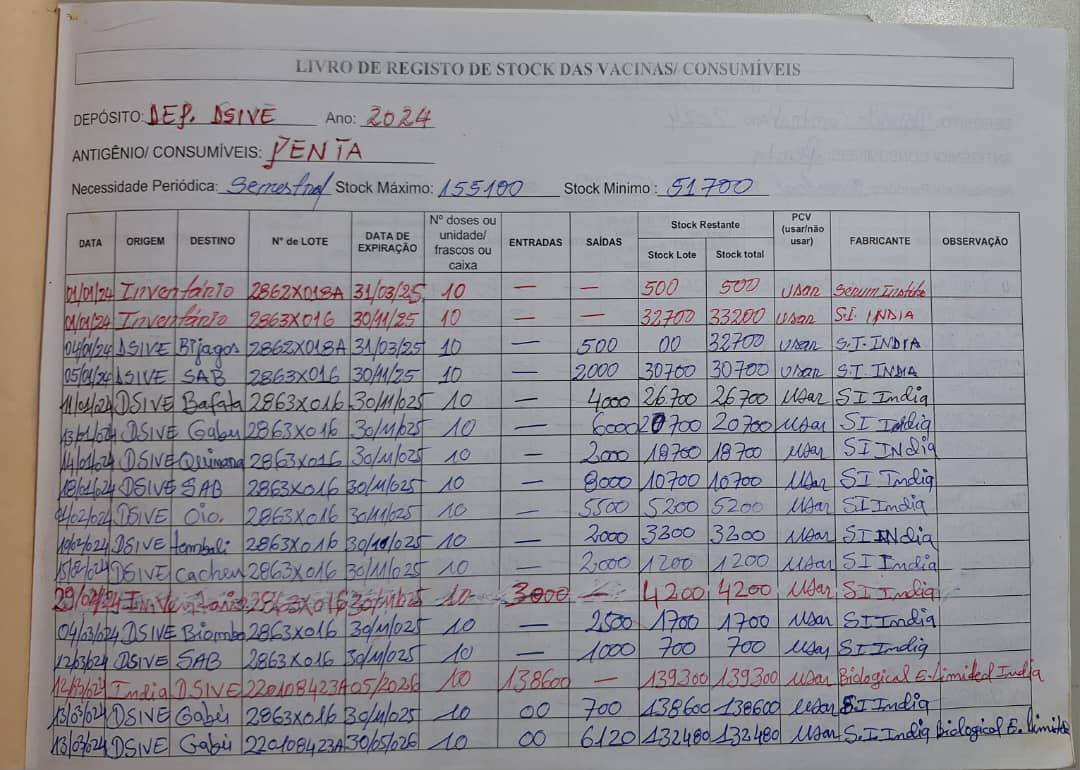 LIVRO DE REGISTO DE STOCK DAS VACINAS/ CONSUMÍVEIS
DEPÓSITO: DEP. DSIVE Ano: 2024
ANTIGÊNIO/ CONSUMÍVEIS: PENTA
Necessidade Periódica: Semestral Stock Máximo: 155100 Stock Minimo : 51700
DATA ORIGEM DESTINO Nº de LOTE DATA DE EXPIRAÇÃO Nº doses ou unidade/ frascos ou caixa ENTRADAS SAÍDAS Stock Restante Stock Lote Stock total PCV (usar/não usar) FABRICANTE OBSERVAÇÃO
01/01/24 Inventário 2862X018A 31/03/25 10 — — 500 500 usar Serum Institute
01/01/24 Inventário 2863X016 30/11/25 10 — — 32700 33200 usar S.I. INDIA
04/01/24 DSIVE Bijagos 2862X018A 31/03/25 10 — 500 00 32700 usar S.I. INDIA
05/01/24 DSIVE SAB 2863X016 30/11/25 10 — 2000 30700 30700 usar S.I. INDIA
11/01/024 DSIVE Bafata 2863X016 30/11/025 10 — 4000 26700 26700 usar SI India
13/01/024 DSIVE Gabu 2863X016 30/11/025 10 — 6000 20700 20700 usar SI India
14/01/024 DSIVE Quinara 2863X016 30/11/025 10 — 2000 18700 18700 usar SI INDia
18/01/024 DSIVE SAB 2863X016 30/11/025 10 — 8000 10700 10700 usar SI India
DSIVE Oio. 2863X016 30/11/025 10 — 5500 5200 5200 usar SI India
DSIVE tombali 2863X016 30/11/025 10 — 2000 3200 3200 usar SI INDia
DSIVE cacheu 2863X016 30/11/025 10 — 2000 1200 1200 usar SI India
29/02/24 Inventario 2863X016 30/11/025 10 3000 — 4200 4200 usar SI India
04/03/024 DSIVE Biombo 2863X016 30/11/025 10 — 2500 1700 1700 usar SI India
12/03/024 DSIVE SAB 2863X016 30/11/025 10 — 1000 700 700 usar SI India
12/03/024 India DSIVE 220108423A 05/2026 10 138600 — 139300 139300 usar Biological E. Limided India
13/03/024 DSIVE Gabú 2863X016 30/11/025 10 00 700 138600 138600 usar SI India
13/03/024 DSIVE Gabú 220108423A 30/05/026 10 00 6120 132480 132480 usar S.I. India Biological E. limide